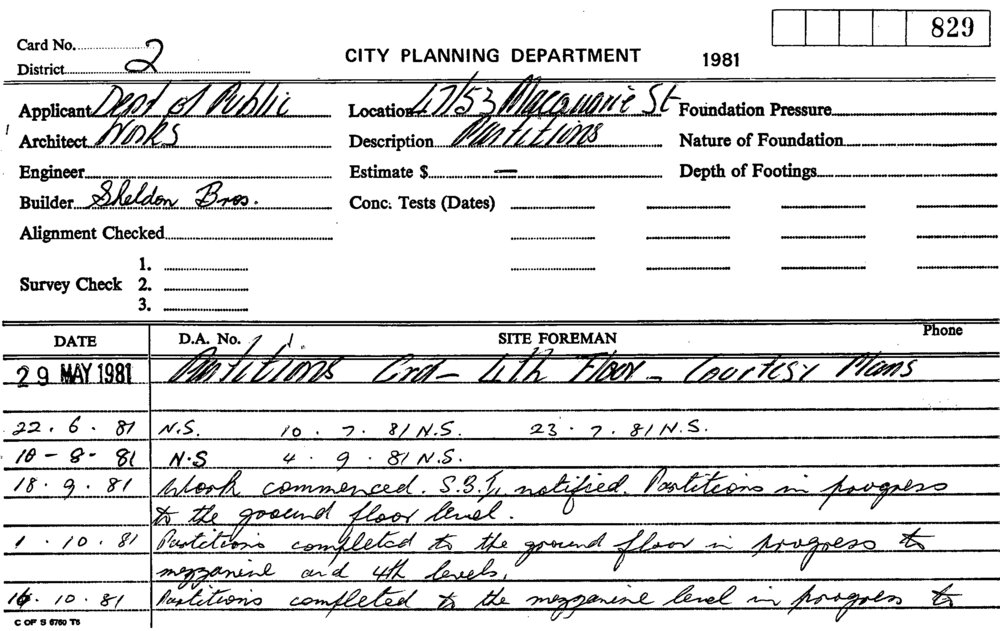 829
Card No. 2 CITY PLANNING DEPARTMENT 1981
District
Applicant Dept of Public Location 47/53 Macquarie St Foundation Pressure
Architect Works Description Partitions Nature of Foundation
Engineer Estimate $ — Depth of Footings
Builder Sheldon Bros. Conc. Tests (Dates)
Alignment Checked
1.
Survey Check 2.
3.
DATE D.A. No. SITE FOREMAN Phone
29 MAY 1981 Partitions Grd - 4th Floor - Courtesy Plans
22.6.81 N.S. 10.7.81 N.S. 23.7.81 N.S.
10-8-81 N.S 4.9.81 N.S.
18.9.81 Work commenced. notified. Partitions in progress
to the ground floor level.
1.10.81 Partitions completed to the ground floor in progress to
mezzanine and 4th levels.
16.10.81 Partitions completed to the mezzanine level in progress to
C OF S 6760 T5